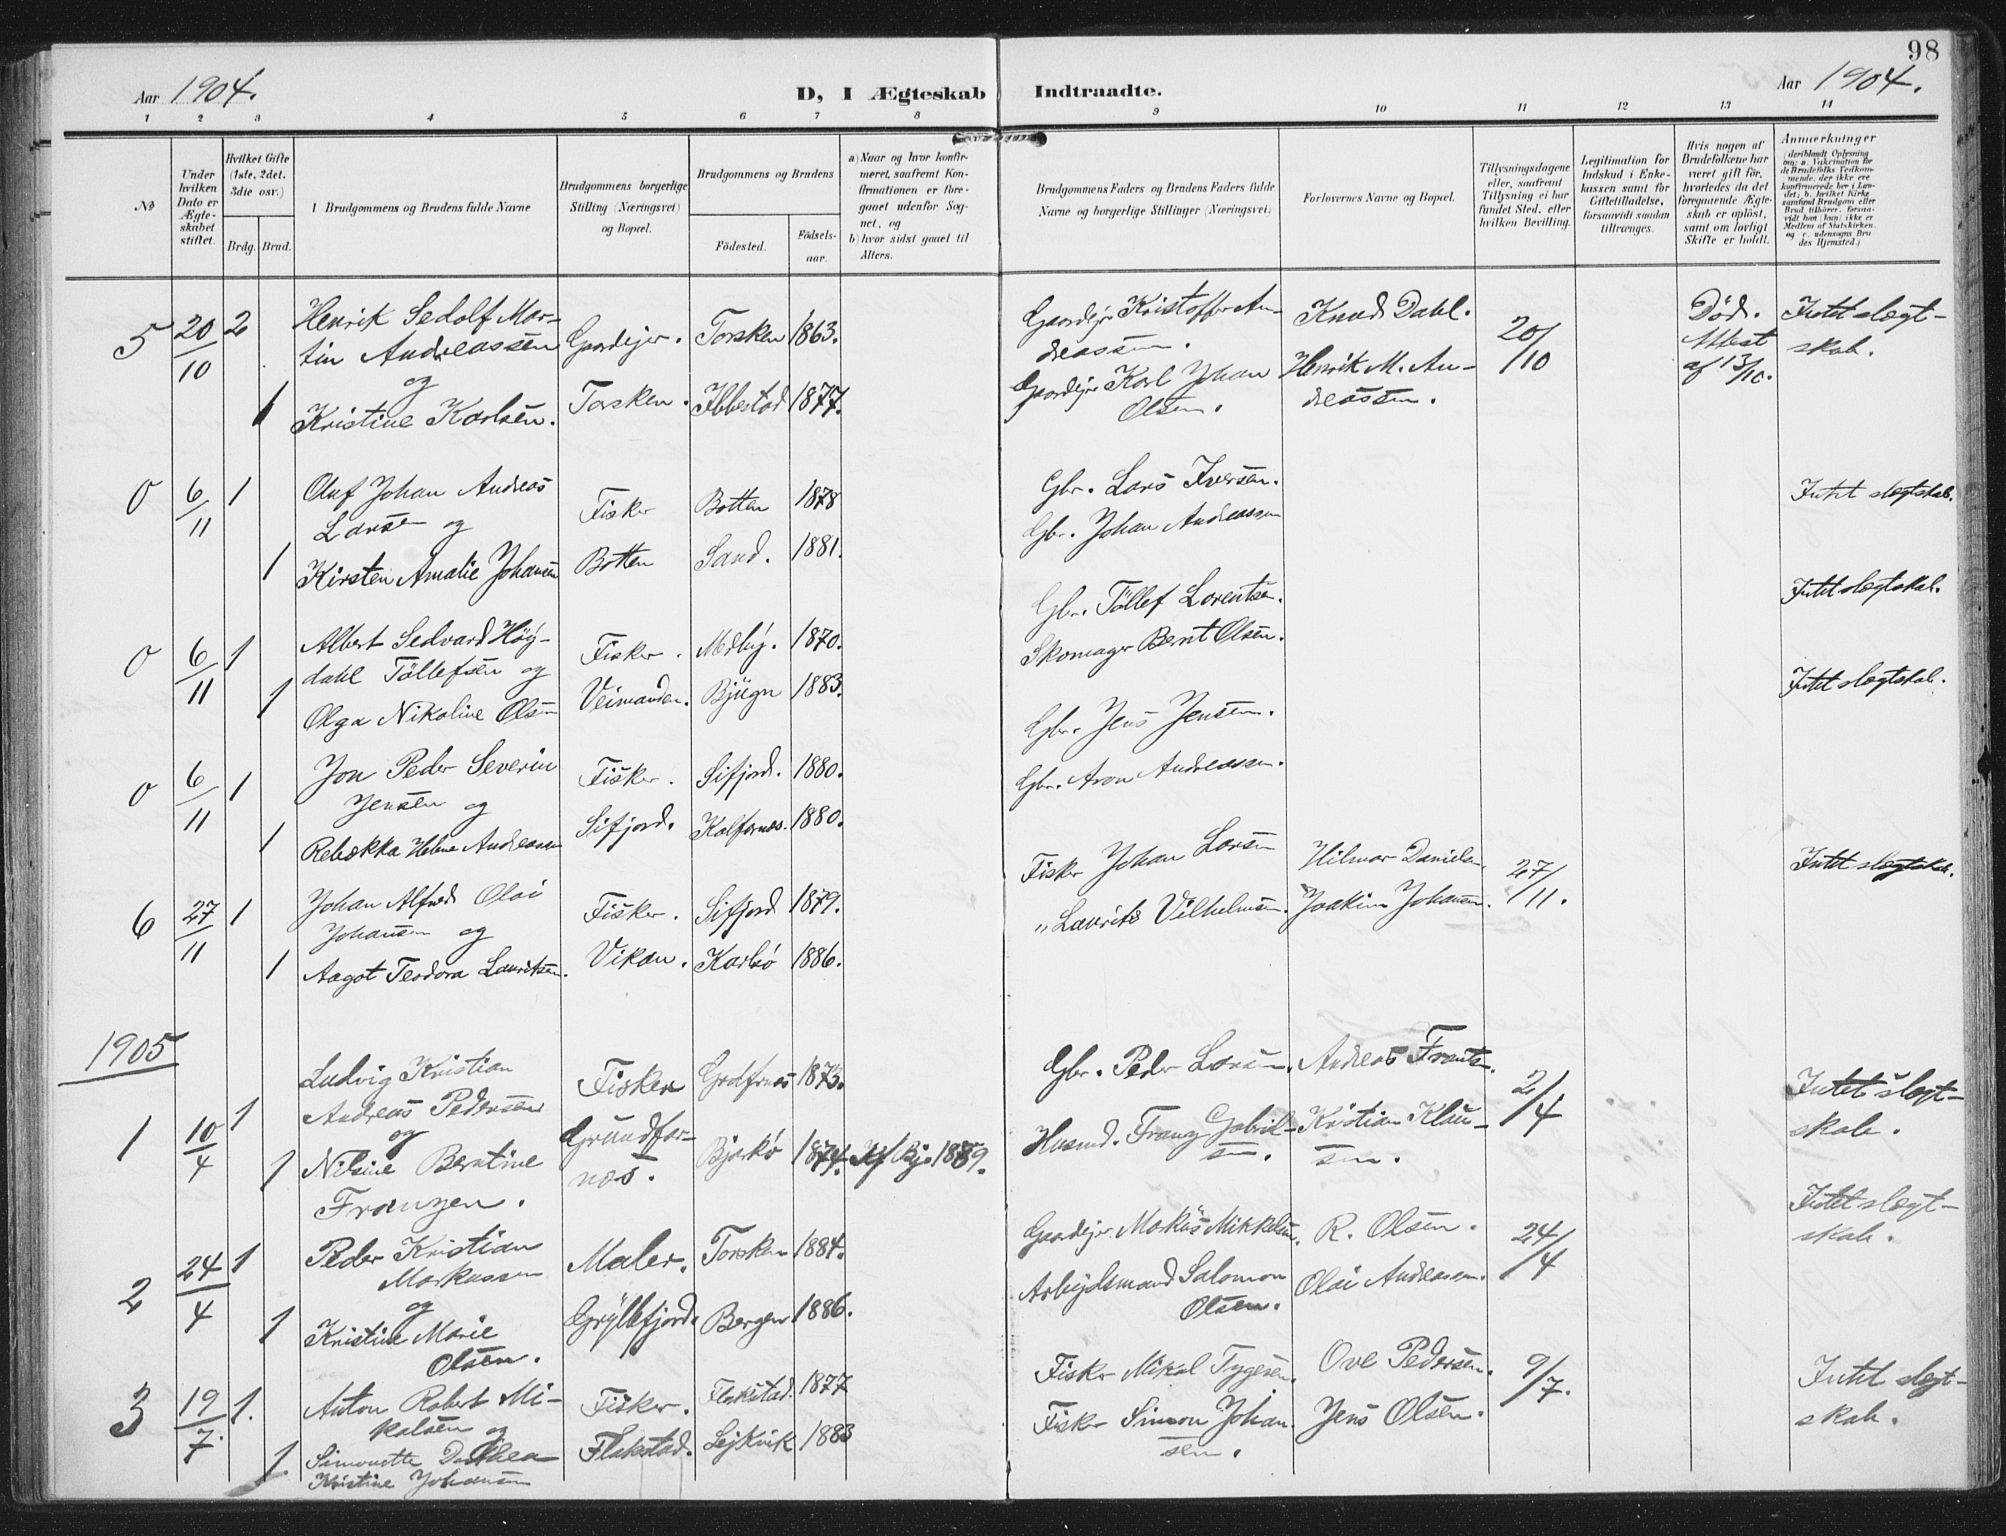 98
Aar 1904.
D, I Ægteskab Indtraadte.
Aar 1904.
1 2 3 4 5 6 7 8 9 10 11 12 13 14
No
Under hvilken Dato er Ægteskabet stiftet.
Hvilket Gifte (1ste, 2det, 3die osv.)
Brdg. Brud.
Brudgommens og Brudens fulde Navne
Brudgommens borgerlige Stilling (Næringsvei) og Bopæl.
Brudgommens og Brudens
Födested.
Födselsaar.
a) Naar og hvor konfirmeret, saafremt Konfirmationen er foregaaet udenfor Sognet, og
b) hvor sidst gaaet til Alters.
Brudgommens Faders og Brudens Faders fulde Navne og borgerlige Stillinger (Næringsvei)
Forlovernes Navne og Bopæl.
Tillysningsdagene eller, saafremt Tillysning ei har fundet Sted, efter hvilken Bevilling.
Legitimation for Indskud i Enkekassen samt for Giftetilladelse, forsaavidt saadan tiltrænges.
Hvis nogen af Brudefolkene har været gift før, hvorledes da det foregaaende Ægteskab er oplöst, samt om lovligt Skifte er holdt.
Anmerkninger
5 20/10 2 Henrik Sedolf Martin Andreassen Gaardejer. Torsken 1863. Gaardejer Kristoffer Andreassen. Knud Dahl. 20/10 Død. Attest af 13/10. Intet slegtskab.
og
1 Kristine Karlsen. Torsken. Ibbestad 1877. Gaardejer Karl Johan Olsen. Henrik M. Andreassen.
0 6/11 1 Oluf Johan Andreas Larsen og Fisker Botten 1878 Gbr. Lars Iversen. Intet slegtskab.
1 Kirsten Amalie Johansen Botten Sand. 1881. Gbr. Johan Andreassen
0 6/11 1 Albert Sedvard Høydahl Töllefsen og Fisker. Medby. 1870. Gbr. Töllef Lorentsen. Intet slegtskab.
1 Olga Nikoline Olsen Veimanden. Bjugn 1883. Skomager Bernt Olsen.
0 6/11 1 Jon Peder Severin Jensen og Fisker. Sifjord. 1880. Gbr. Jens Jensen. Intet slegtskab.
1 Rebekka Helene Andreassen Sifjord. Kalfarnes. 1880. Gbr. Aron Andreassen.
6 27/11 1 Johan Alfred Olai Johansen og Fisker. Sifjord 1879. Fisker Johan Larsen Hilmar Danielsen 27/11. Intet slegtskab.
1 Aagot Teodora Lauritsen. Vikan. Karlsö 1886. " Laurits Vilhelmsen. Joakim Johansen.
1905
1 10/4 1 Ludvig Kristian Andreas Pedersen Fisker 1873. Gbr. Peder Larsen. Andreas Frantsen. 2/4 Intet slegtskab.
og
1 Nilsine Bentine Franzen. Grundfarnes. Bjarkö 1874. Kf Bj. 1889. Husmd. Franz Gabrilsen. Kristian Klausen.
2 24/4 1 Peder Kristian Markussen Maler. Torsken 1884. Gaardejer Markus Mikkelsen. R. Olsen. 24/4 Intet slegtskab.
og
1 Kristine Marie Olsen. Gryllefjord. Bergen 1886. Arbejdsmand Salomon Olsen. Olai Andreassen.
3 19/7. 1. Anton Robert Mikalsen og Fisker. Flakstad. 1877 Fisker Mikal Tygesen. Ove Pedersen. 9/7. Intet slegtskab.
1 Simonette Dorthea Kristine Johansen Flakstad. Lejkvik 1883 Fisker Simon Johansen. Jens Olsen.